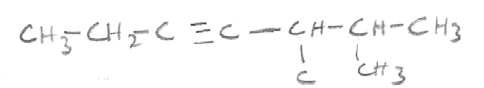 CH3-CH2-C≡C-CH-CH-CH3
C CH3